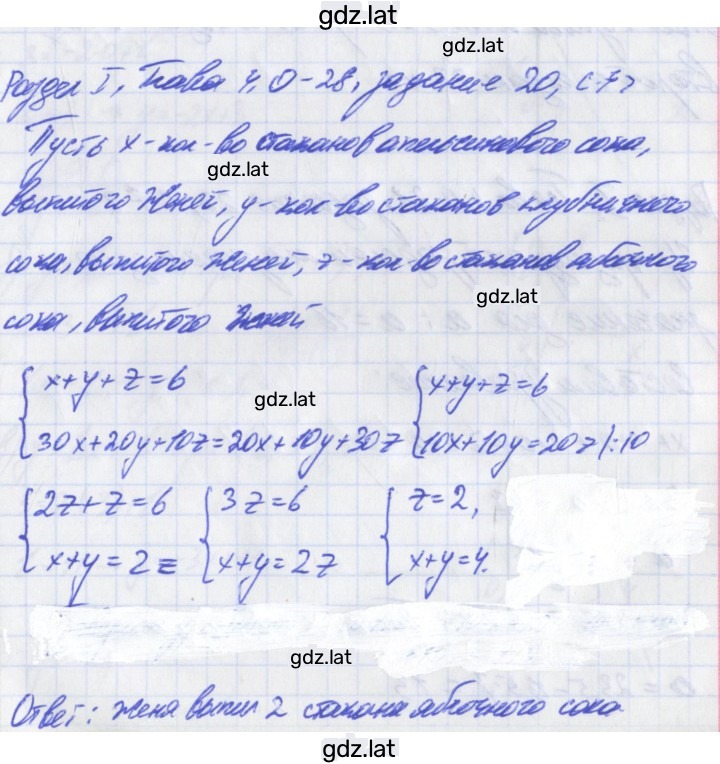 gdz.lat
gdz.lat
Раздел I, Глава 4, О-28, задание 20, с 73
Пусть x - кол-во стаканов апельсинового сока,
gdz.lat
выпитого Женей, y - кол-во стаканов клубничного
сока, выпитого Женей, z - кол-во стаканов яблочного
gdz.lat
сока, выпитого Женей
{x+y+z=6 {x+y+z=6
gdz.lat
30x+20y+10z=20x+10y+30z 10x+10y=20z |:10
{2z+z=6 {3z=6 {z=2,
gdz.lat
x+y=2z x+y=2z x+y=4.
gdz.lat
Ответ: Женя выпил 2 стакана яблочного сока
gdz.lat